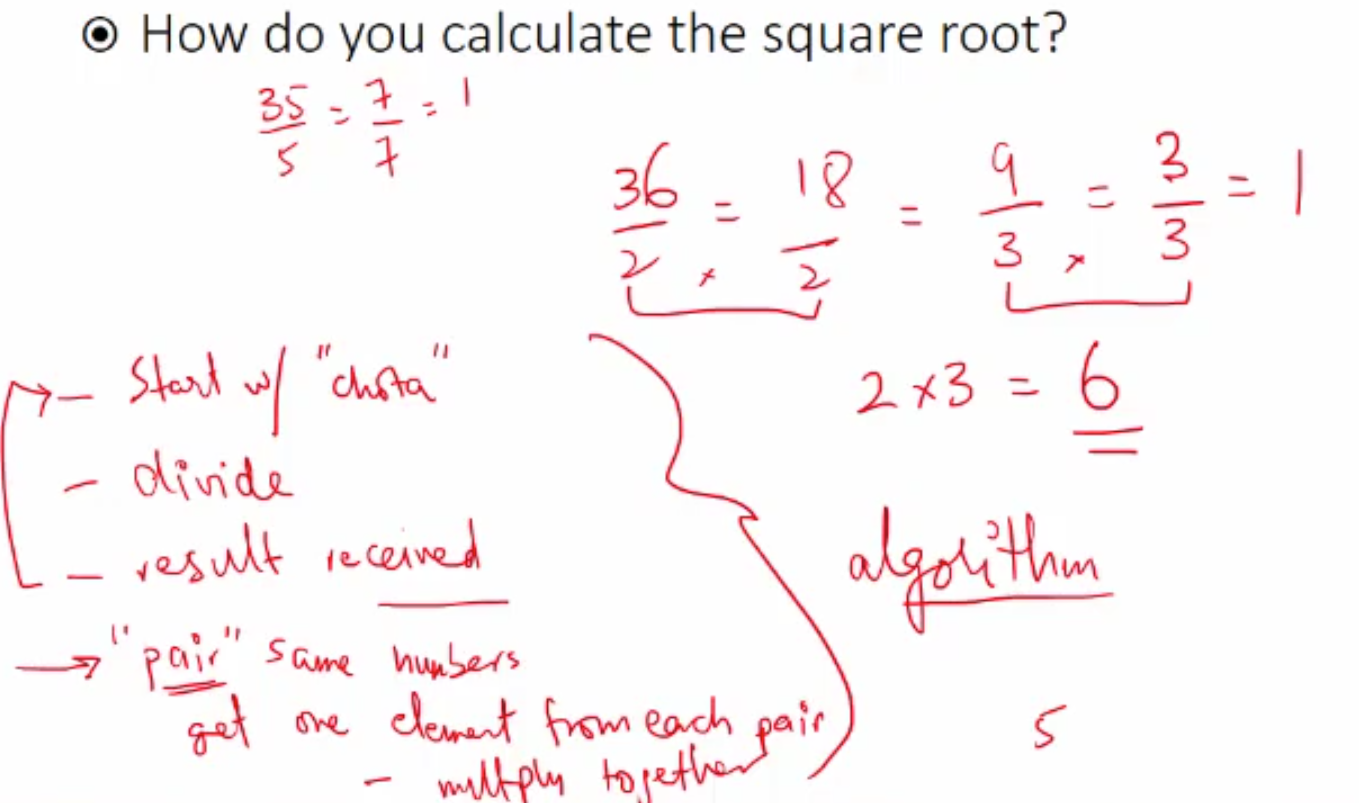 How do you calculate the square root?
35/5 = 7/7 = 1
36/2 = 18/2 = 9/3 = 3/3 = 1
× ×
2 × 3 = 6
- Start w/ "chota"
- divide
- result received
algorithm
→ "pair" same numbers
get one element from each pair
5
- multply together